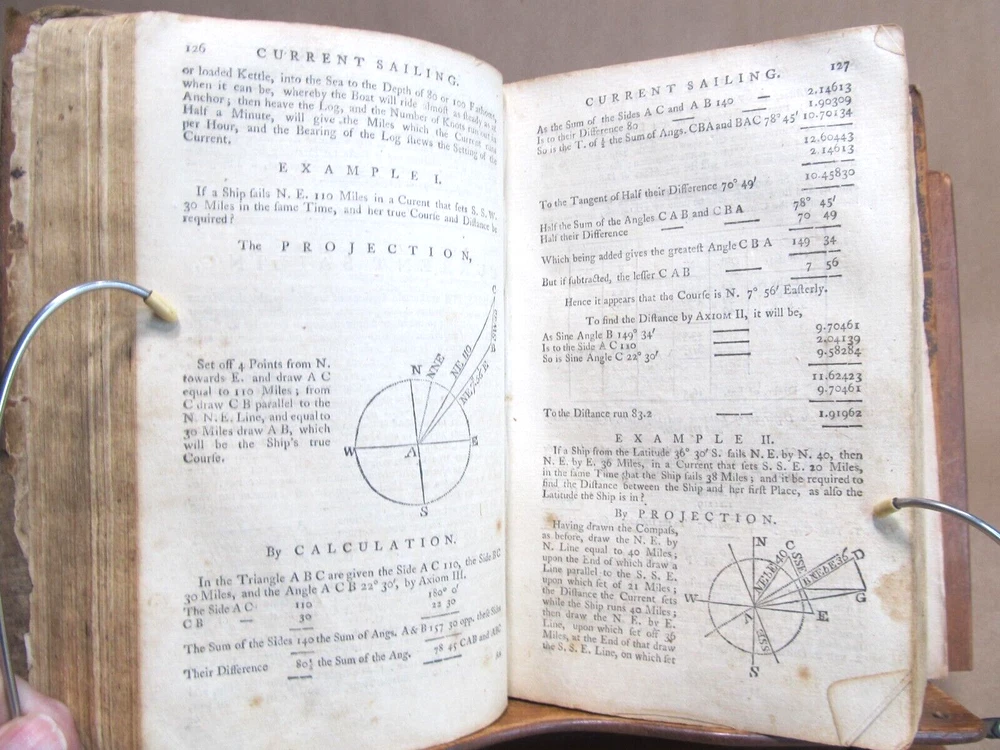 126
CURRENT SAILING.
or loaded Kettle, into the Sea to the Depth of 80 or 100 Fathoms,
when it can be, whereby the Boat will ride almoſt as ſteady as at
Anchor; then heave the Log, and the Number of Knots run out in
Half a Minute, will give the Miles which the Current runs
per Hour, and the Bearing of the Log ſhews the Setting of the
Current.
EXAMPLE I.
If a Ship ſails N. E. 110 Miles in a Curent that ſets S. S. W.
30 Miles in the ſame Time, and her true Courſe and Diſtance be
required?
The PROJECTION,
C
B
NE 110
NNE
N
Set off 4 Points from N.
towards E. and draw A C
equal to 110 Miles; from
C draw C B parallel to the
N. N. E. Line, and equal to
30 Miles draw A B, which
will be the Ship's true
Courſe.
W
A
E
S
By CALCULATION.
In the Triangle A B C are given the Side A C 110, the Side BC
30 Miles, and the Angle A C B 22° 30', by Axiom III.
The Side A C 110 180° 0'
C B — 30 22 30
The Sum of the Sides 140 the Sum of Angs. A & B 157 30 opp. theſe Sides
Their Difference 80 ½ the Sum of the Ang. 78 45 CAB and ABC
As
CURRENT SAILING. 127
As the Sum of the Sides A C and A B 140 — 2.14613
Is to their Difference 80 — 1.90309
So is the T. of ½ the Sum of Angs. CBA and BAC 78° 45' 10.70134
12.60443
2.14613
To the Tangent of Half their Difference 70° 49' 10.45830
Half the Sum of the Angles C A B and C B A 78° 45'
Half their Difference — — 70 49
Which being added gives the greateſt Angle C B A 149 34
But if ſubtracted, the leſſer C A B — 7 56
Hence it appears that the Courſe is N. 7° 56' Eaſterly.
To find the Diſtance by AXIOM II, it will be,
As Sine Angle B 149° 34' — 9.70461
Is to the Side A C 110 — 2.04139
So is Sine Angle C 22° 30' — 9.58284
11.62423
9.70461
To the Diſtance run 83.2 — 1.91962
EXAMPLE II.
If a Ship from the Latitude 36° 30' S. ſails N. E. by N. 40, then
N. E. by E. 36 Miles, in a Current that ſets S. S. E. 20 Miles,
in the ſame Time that the Ship ſails 38 Miles; and it be required to
find the Diſtance between the Ship and her firſt Place, as alſo the
Latitude the Ship is in?
By PROJECTION.
Having drawn the Compaſs,
as before, draw the N. E. by
N. Line equal to 40 Miles;
upon the End of which draw a
Line parallel to the S. S. E.
upon which ſet of 21 Miles;
the Diſtance the Current ſets
while the Ship runs 40 Miles;
then draw the N. E. by E.
Line, upon which ſet off 36
Miles, at the End of that draw
the S. S. E. Line, on which ſet
N
C
D
SSE
NEbN 40
B NEbE 36
W
A
E
G
SSE
S